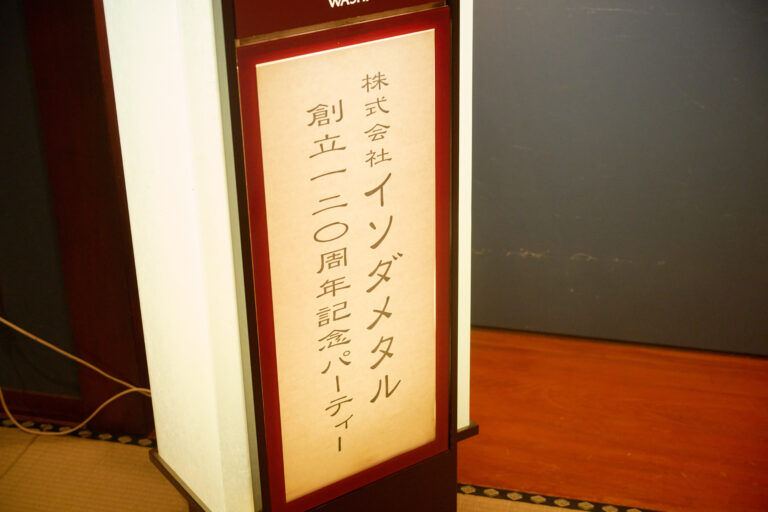 株式会社イソダメタル
創立一二〇周年記念パーティー